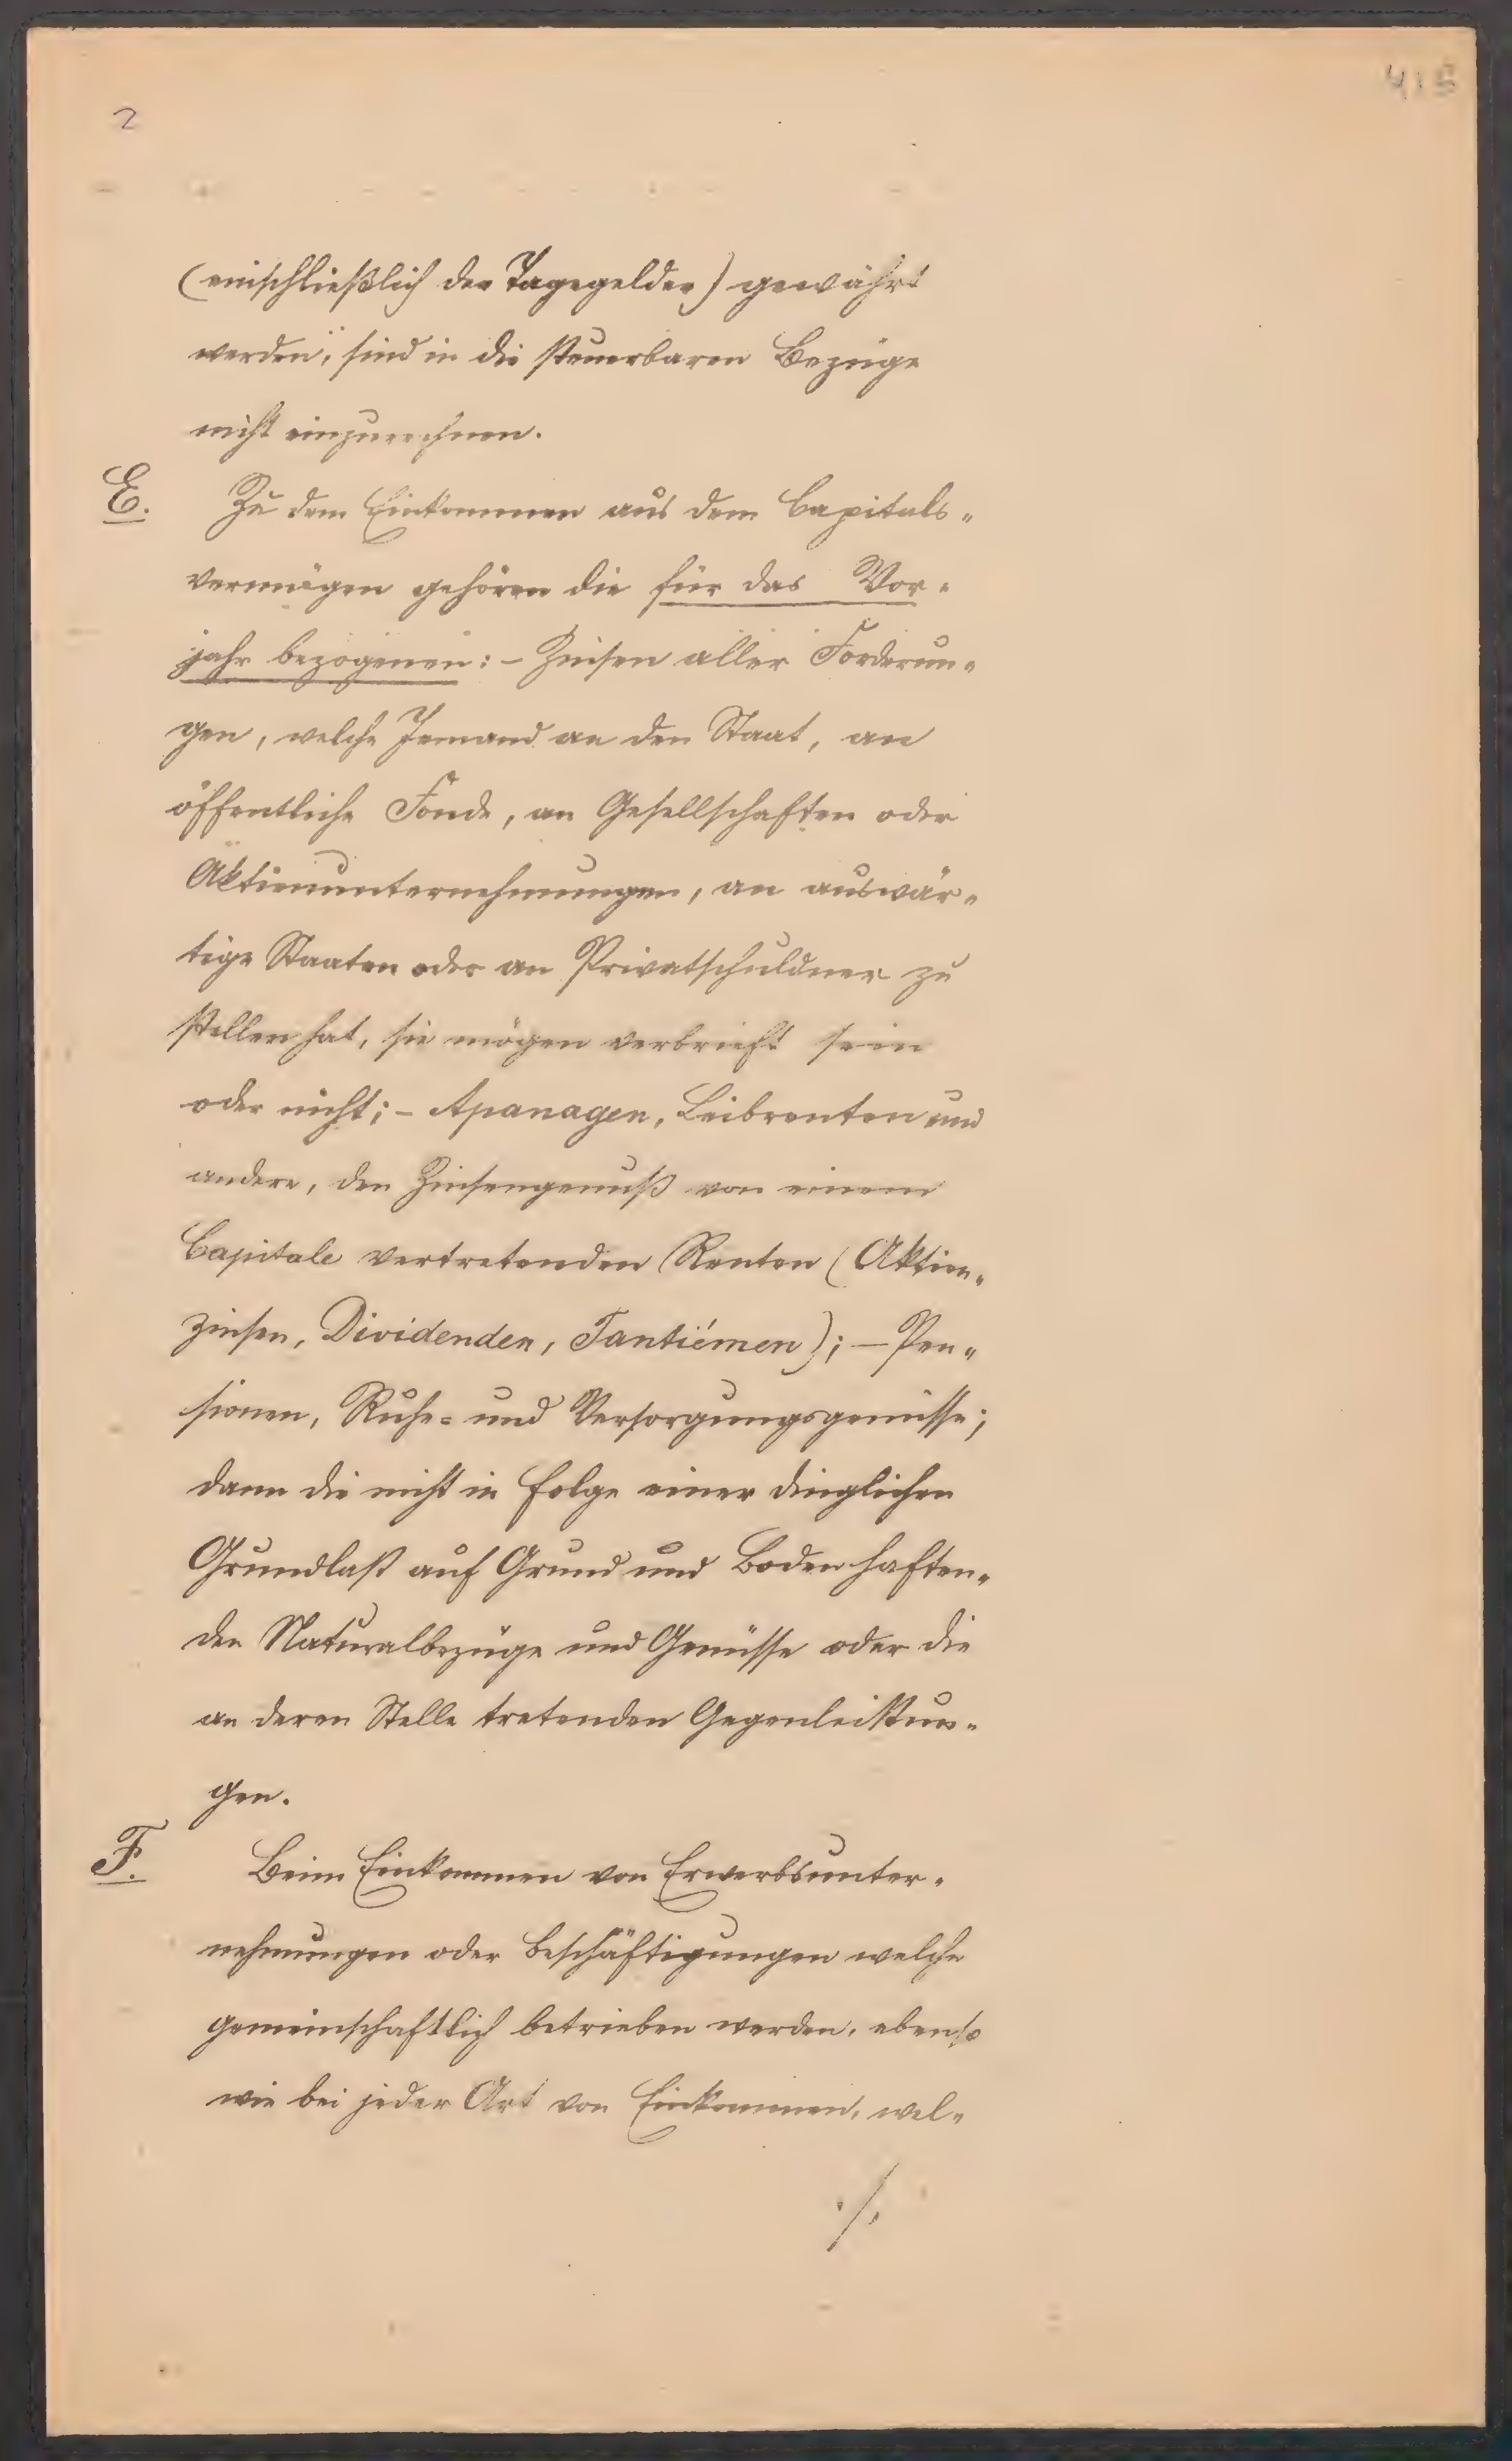 415
2
(einschließlich der Tagegelder) gewährt
werden, sind in die steuerbaren Bezüge
nicht einzurechnen.
E. Zu dem Einkommen aus dem Capitals-
vermögen gehören die für das Vor-
jahr bezogenen: - Zinsen aller Forderun-
gen, welche Jemand an den Staat, an
öffentliche Fonde, an Gesellschaften oder
Aktienunternehmungen, an auswär-
tige Staaten oder an Privatschuldner zu
stellen hat, sie mögen verbrieft sein
oder nicht; - Apanagen, Leibrenten und
andere, den Zinsengenuß von einem
Capitale vertretenden Renten (Aktien-
zinsen, Dividenden, Tantiémen); - Pen-
sionen, Ruhe- und Versorgungsgenüsse;
dann die nicht in Folge einer dinglichen
Grundlast auf Grund und Boden haften-
den Naturalbezüge und Genüsse oder die
an deren Stelle tretenden Gegenleistun-
gen.
F. Beim Einkommen von Erwerbsunter-
nehmungen oder Beschäftigungen welche
gemeinschaftlich betrieben werden, ebenso
wie bei jeder Art von Einkommen, wel-
./.